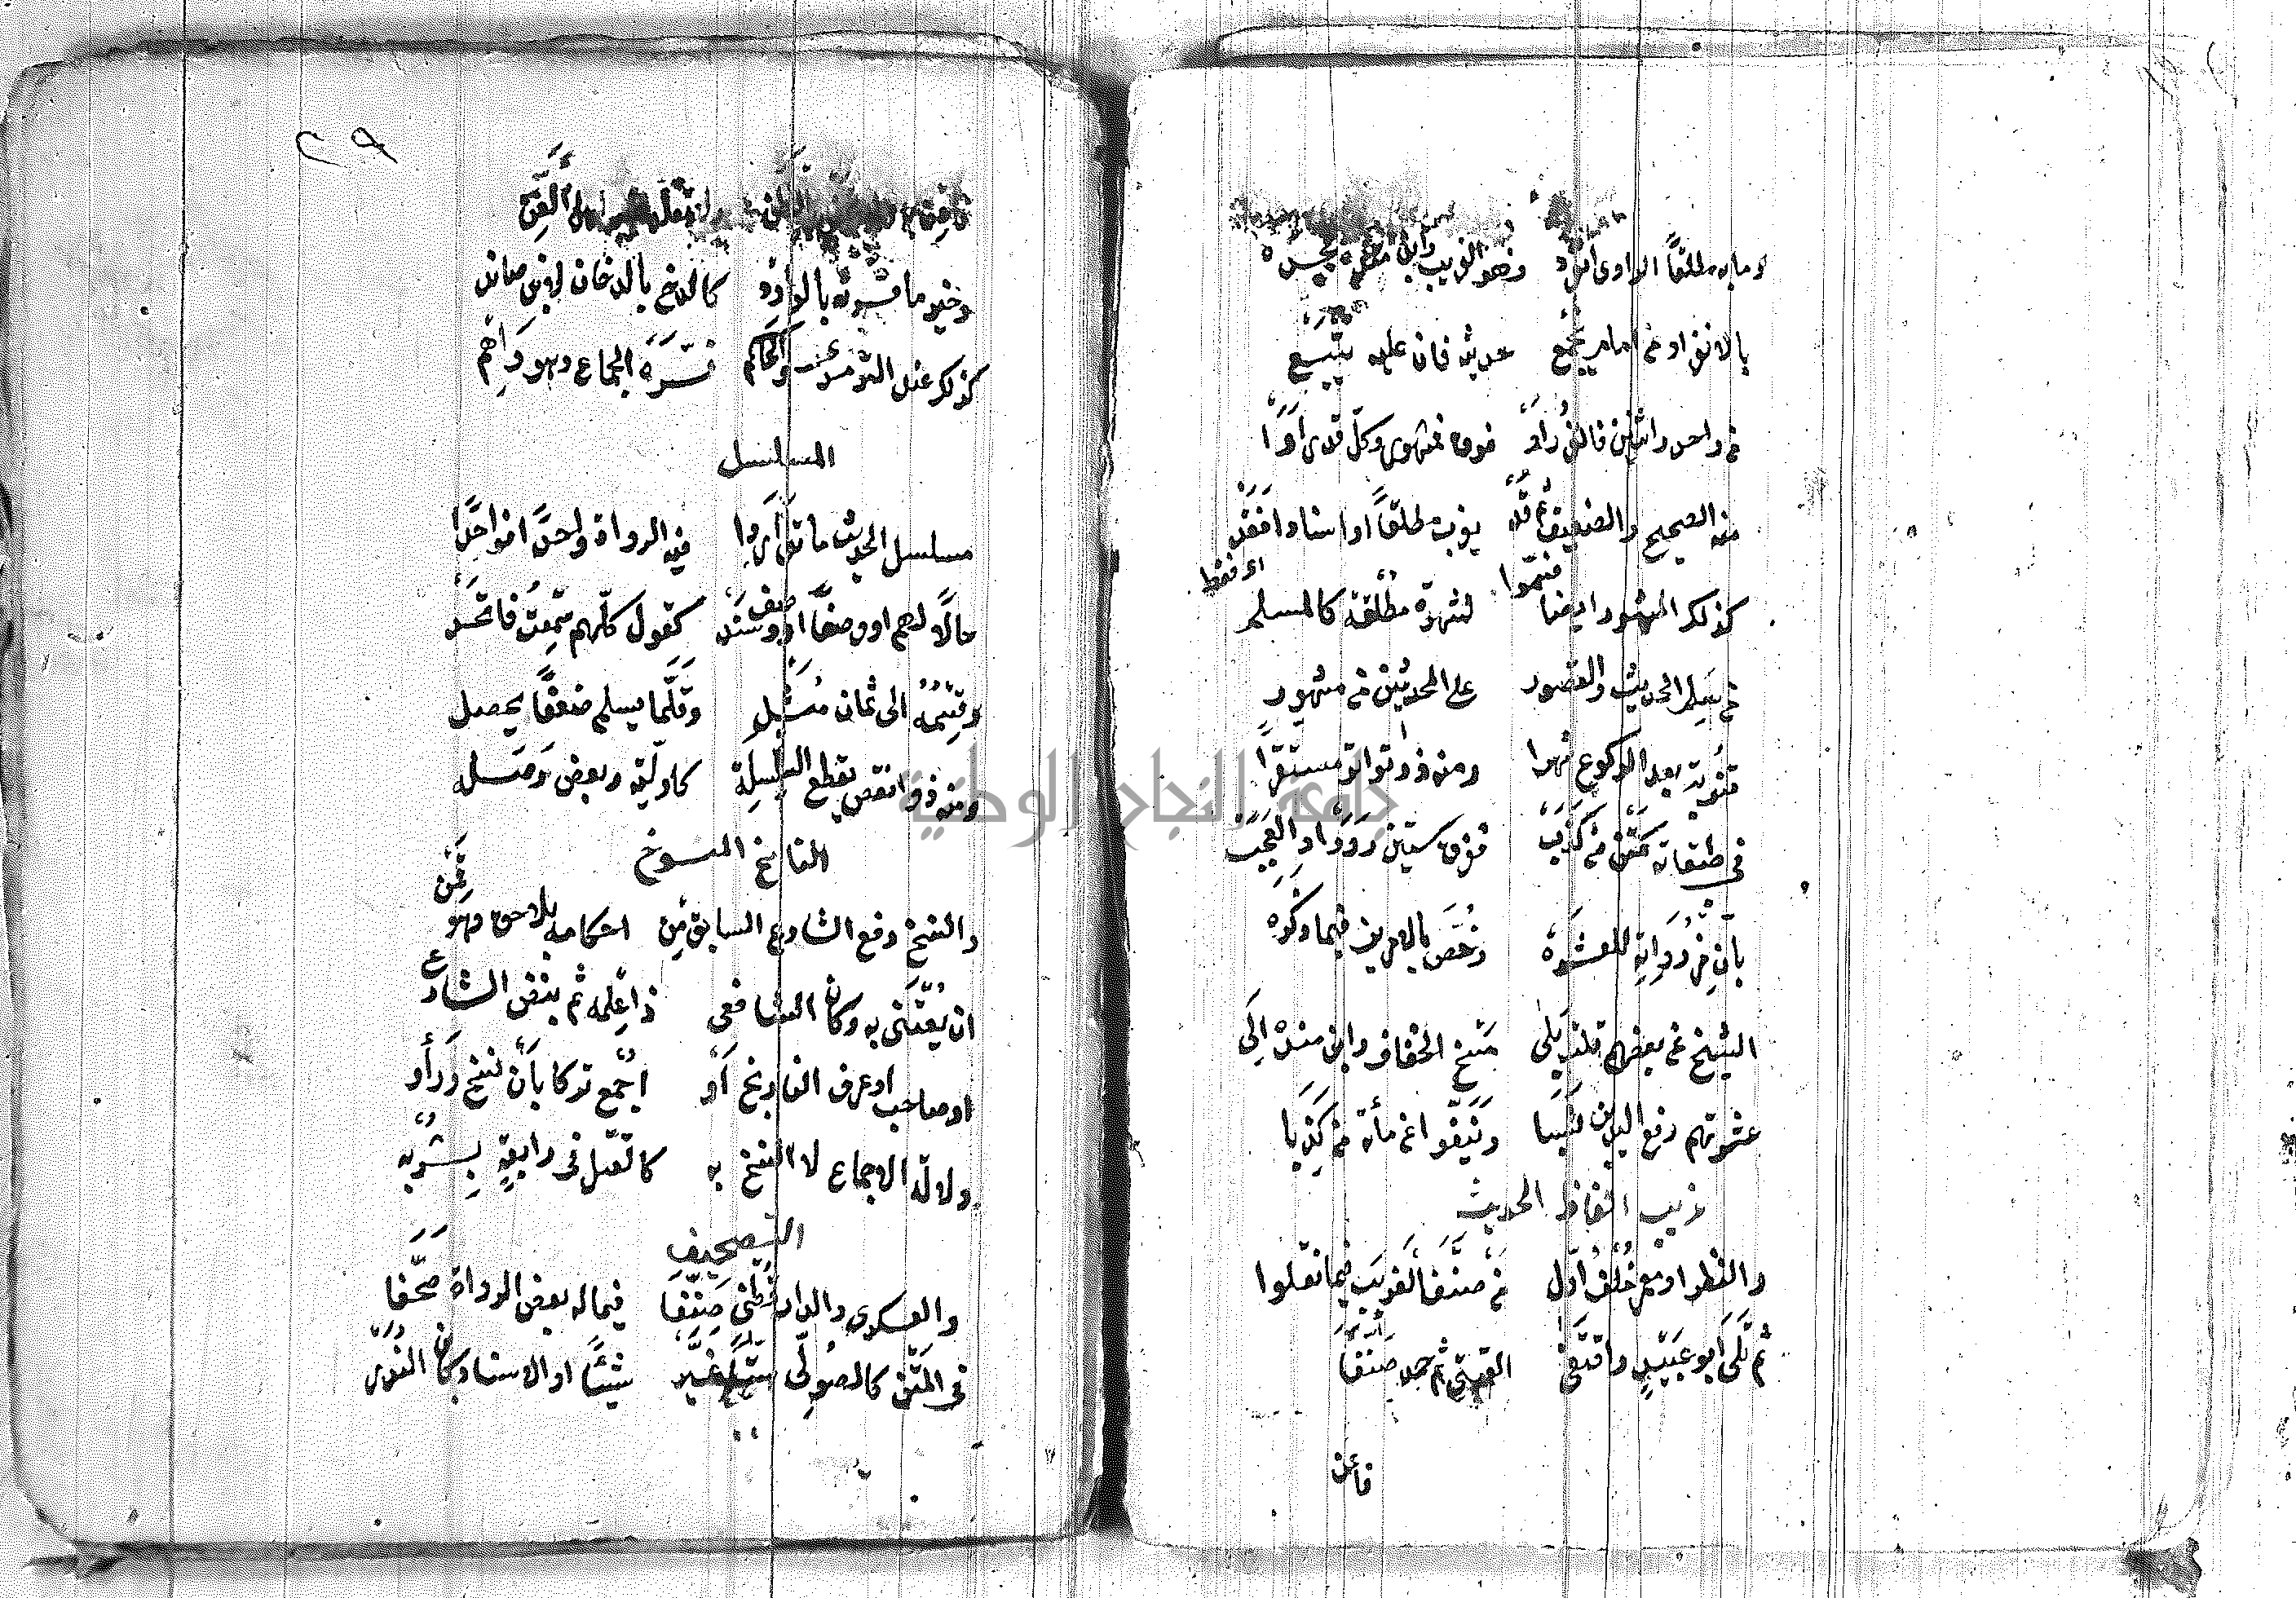 وما به مطلقًا الراوى انفرد فهو الغريب وابن منده فحد
بالانفراد عن امام يجمع حديثه فان عليه يتبع
من واحد واثنين فالعزيز او فوق فمشهور وكل قد رأوا
منه الصحيح والضعيف ثم قد يغرب مطلقًا او اسنادا فقد
اى فقط
كذلك المشهور ايضا قسّموا لشهرة مطلقة كالمسلم
من سلم الحديث والمقصور على المحدثين من مشهور
قنوته بعد الركوع شهرا ومنه ذو تواتر مستقرًا
فى طبقاته كمتن من كذب ففوق ستين رووه والعجب
بأن من رواته للعشره وخص بالامرين فيما ذكره
الشيخ عن بعضهم قلت بلى مسح الخفاف وابن منده الى
عشرتهم رفع اليدين نسبا ونيّفوا عن مأة من كذبا
غريب الفاظ الحديث
والنضر او معمر خلف اول من صنف الغريب فيما نقلوا
ثم تلى ابو عبيد واقتفى القتيبى ثم حمد صنفا
فاعن
٢٩
فاعن به ولا تخض بالظن ولا تقلد غير اهل الفن
وخير ما فسرته بالوارد كالدخ بالدخان لابن صائد
كذلك عند الترمذى والحاكم فسّره الجماع وهو واهم
المسلسل
مسلسل الحديث ما تواردا فيه الرواة واحدًا فواحدًا
حالًا لهم او وصفًا او وصف سند كقول كلهم سمعت فاتحد
وقسمه الى ثمان مثل وقلّما يسلم ضعفًا يحصل
ومنه ذو نقص بقطع السلسلة كاولية وبعض وصله
الناسخ المنسوخ
والنسخ رفع الشارع السابق من احكامه بلاحق وهو قمن
ان يعتنى به وكان الشافعى ذا علمه ثم بنص الشارع
او صاحب او عرف التاريخ او اجمع تركا بان نسخ ورأوا
دلالة الاجماع لا النسخ به كالقتل فى رابعة بشربه
التصحيف
والعسكرى والدارقطنى صنفا فيما له بعض الرواة صحّفا
فى المتن كالصولى ستًا غيّر شيئًا او الاسناد كابن النُدّر
جامعة النجاح الوطنية